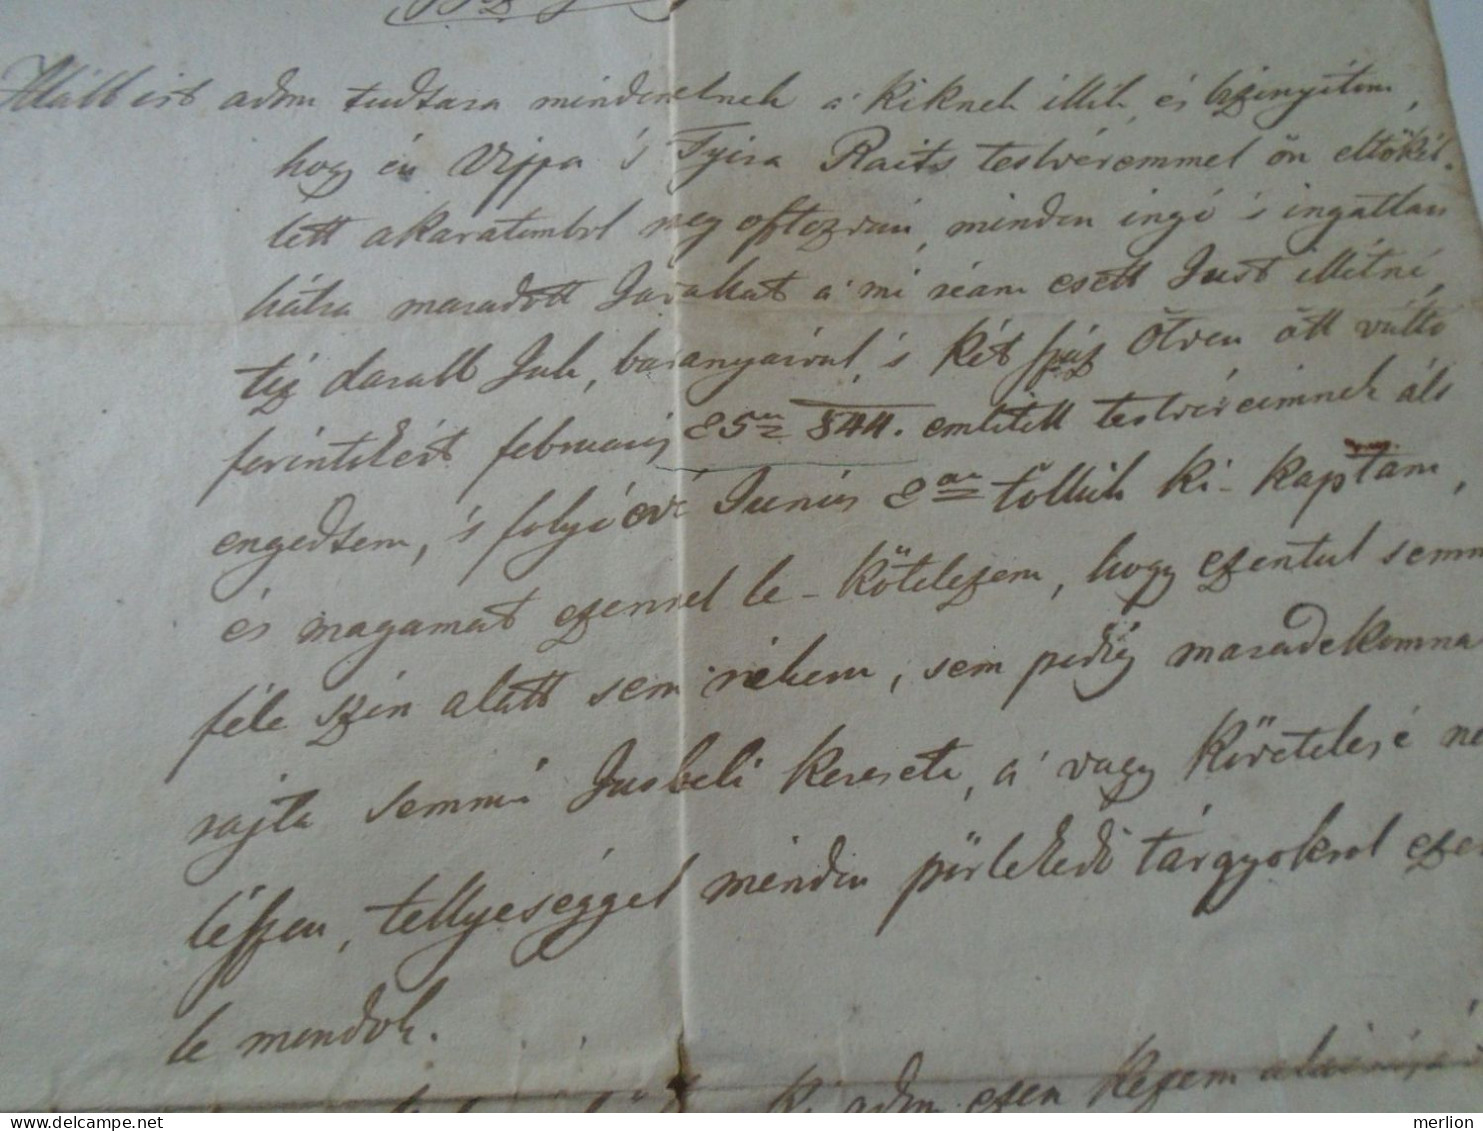 adom tudtara mindeneknek a' kiknek illik, és bizonyitom,
hogy én Vippa 's Tyira Raits testvéremmel ön eltökél-
lett akaratombol meg osztozván, minden ingó 's ingatlan
hátra maradott Javakat a' mi réám esett Just illetné,
tiz darab Juh, baranyaival, 's két száz Ötven ött váltó
forintokért február 25én 844. emlitett testvéreimnek ált
engedtem, 's folyó évi Junius 2án töllük ki-kaptam,
és magamat ezennel le-kötelezem, hogy ezentul semmi
féle szin alatt sem nékem, sem pedig maradekomna
rajta semmi Jusbeli kereseti, a' vagy követelésé ne
lészen, tellyeséggel minden pörlekedő tárgyokrol ezen
le mondok.
ki adom ezen kezem
merlion